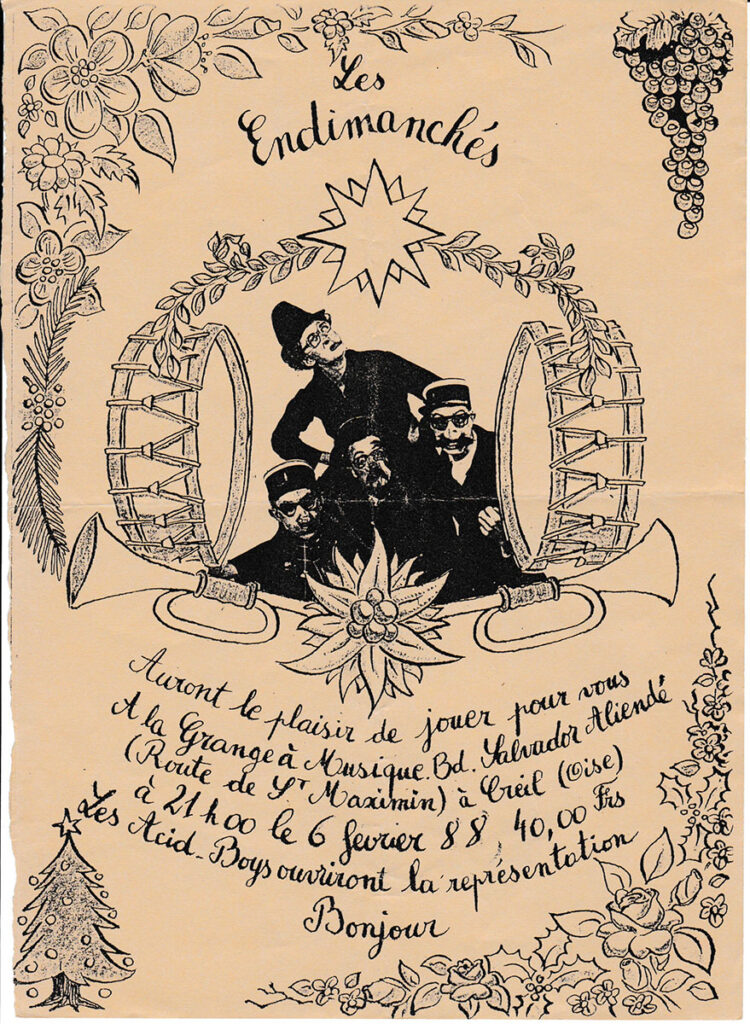 Les
Endimanchés
Auront le plaisir de jouer pour vous
A la Grange à Musique. Bd. Salvador Aliendé
(Route de St Maximin) à Creil (Oise)
à 21 h 00 le 6 fevrier 88 40,00 Frs
Les Acid-Boys ouvriront la représentation
Bonjour